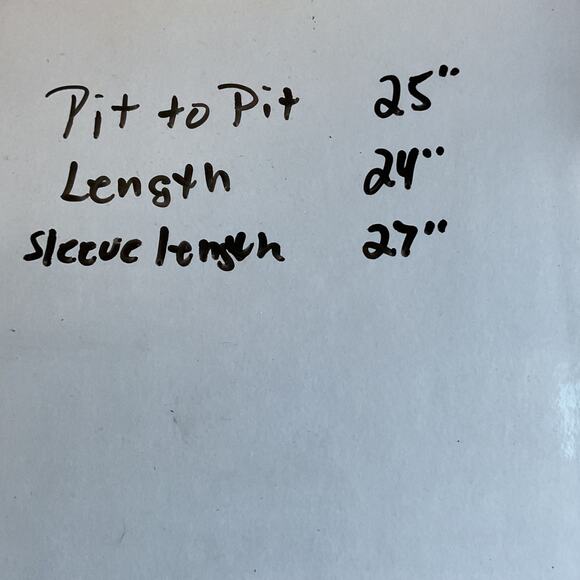 Pit to Pit 25"
Length 24"
Sleeve length 27"